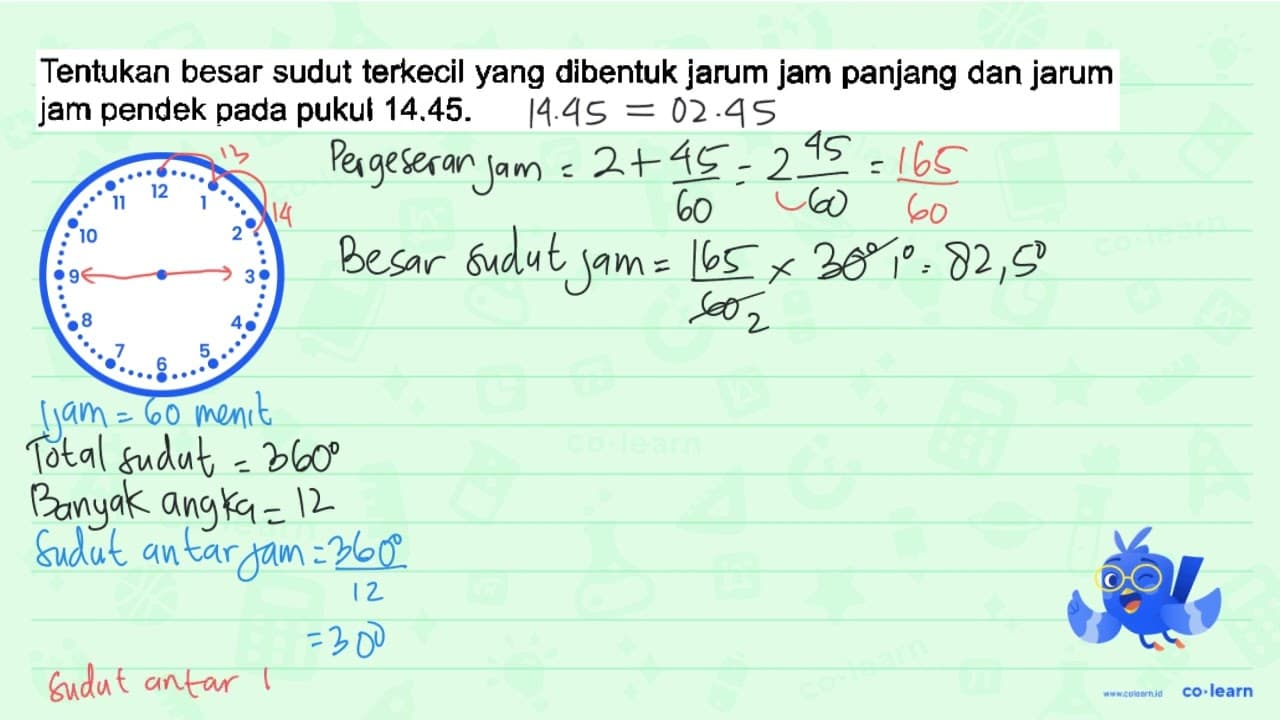 Tentukan besar sudut terkecil yang dibentuk jarum jam panjang dan jarum
jam pendek pada pukul 14.45. 14.45 = 02.45
Pergeseran jam = 2 + 45/60 = 2 45/60 = 165/60
Besar sudut jam = 165/60 2 × 30° 1° = 82,5°
13
14
12
11
1
10
2
9
3
8
4
7
5
6
1 jam = 60 menit
Total sudut = 360°
Banyak angka = 12
Sudut antar jam = 360°/12
= 30°
Sudut antar 1
co·learn
www.colearn.id co·learn